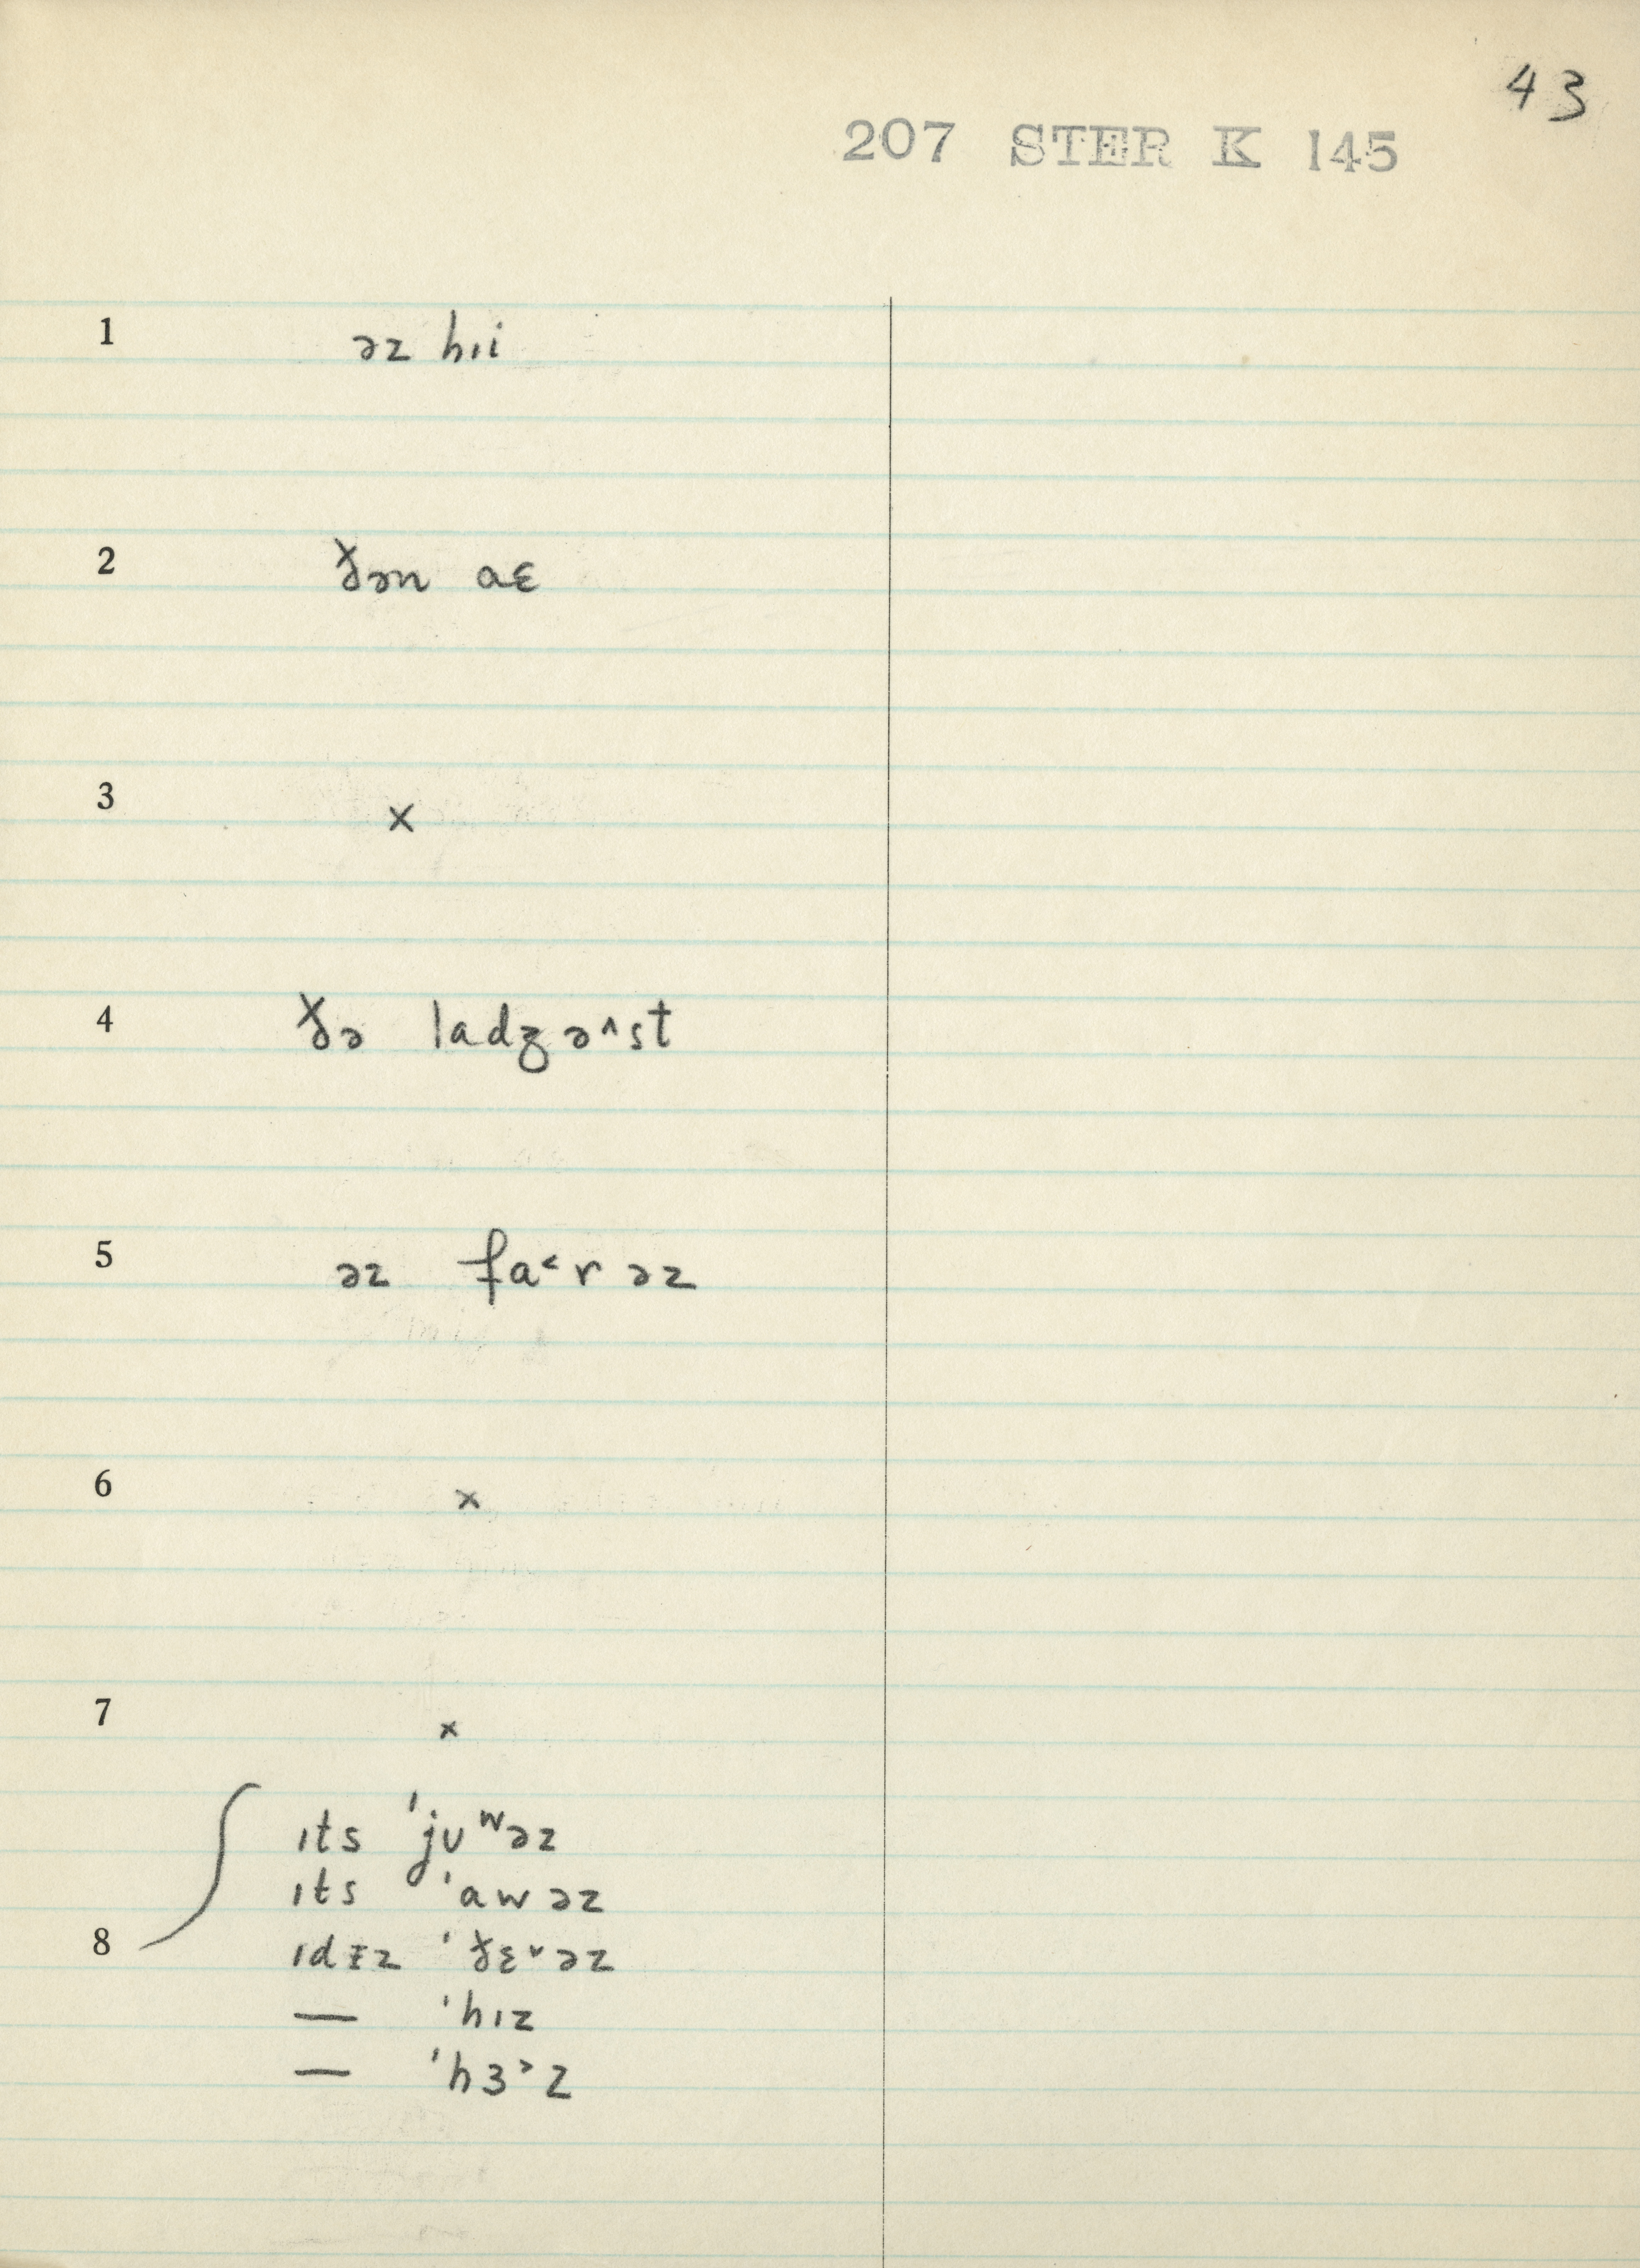 43
207 STER K 145
1 əz hıi
2 ðən aɛ
3 ×
4 ðə ladʒə^st
5 əz fa˂rəz
6 ×
7 ×
ıts 'jʊʷəz
ıts 'awəz
8 ıdɪz 'ðɛ˅əz
— 'hız
— 'hɜ˃z